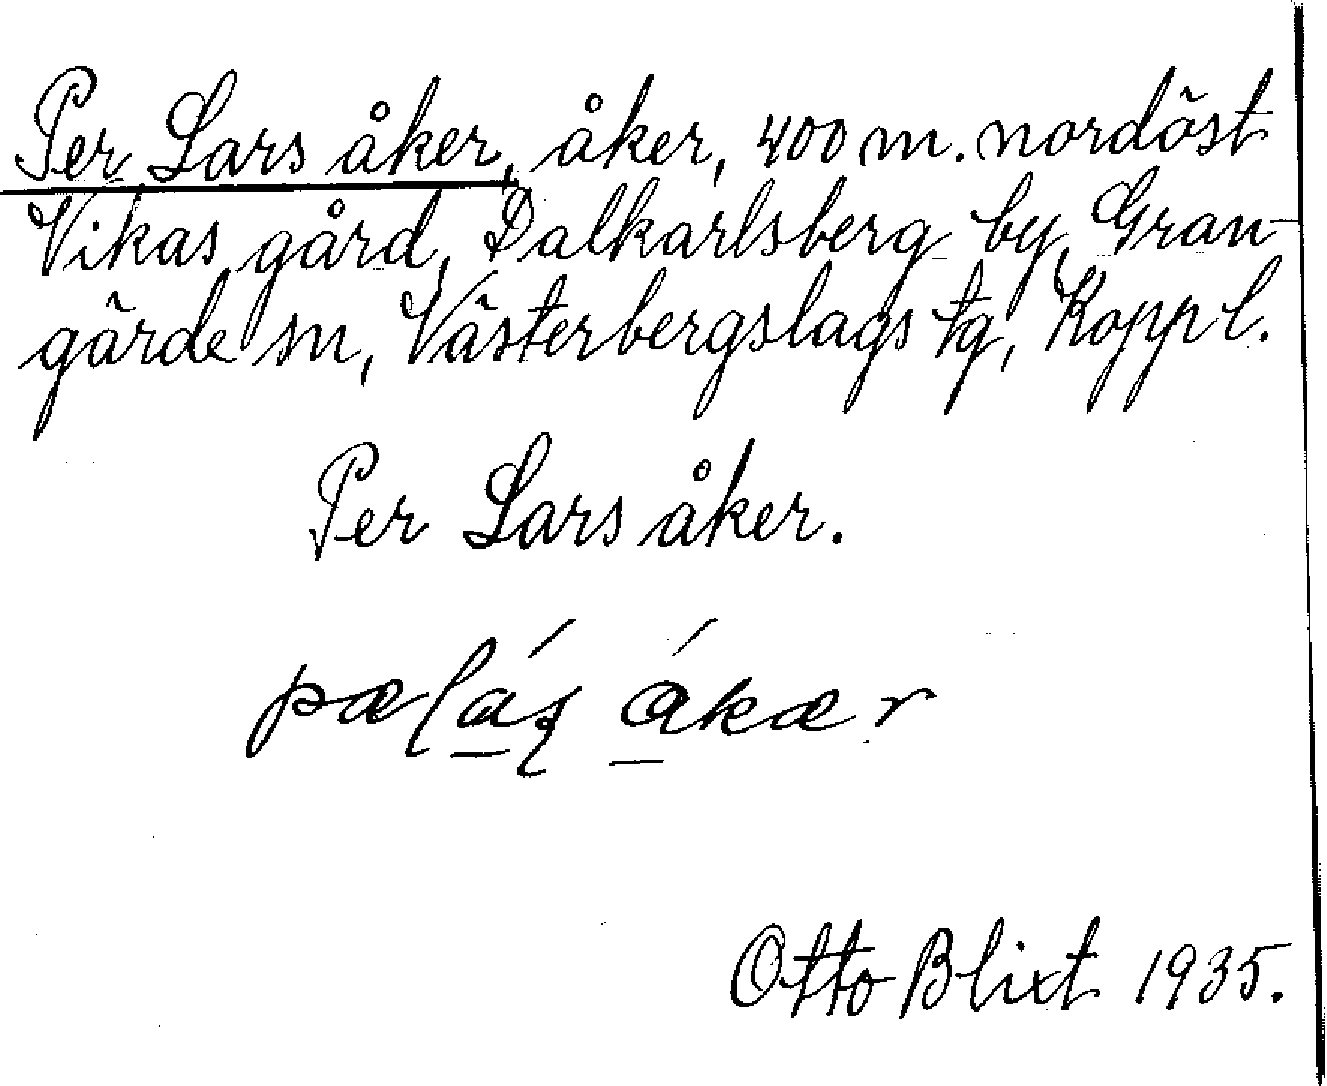 Per Lars åker, åker, 400 m. nordöst
Vikas gård, Dalkarlsberg by, Gran-
gärde sn, Västerbergslags tg, Kopp l.
Per Lars åker.
Otto Blixt 1935.